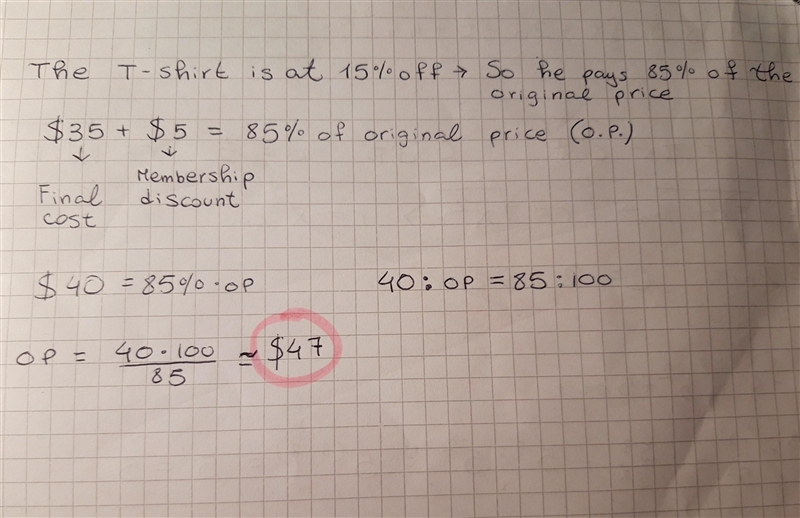 The T-shirt is at 15% off → So he pays 85% of the
original price
$35 + $5 = 85% of original price (O.P.)
↓ ↓
Final cost
Membership discount
$40 = 85% · OP
40 : OP = 85 : 100
OP = 40 · 100 / 85 ≃ $47